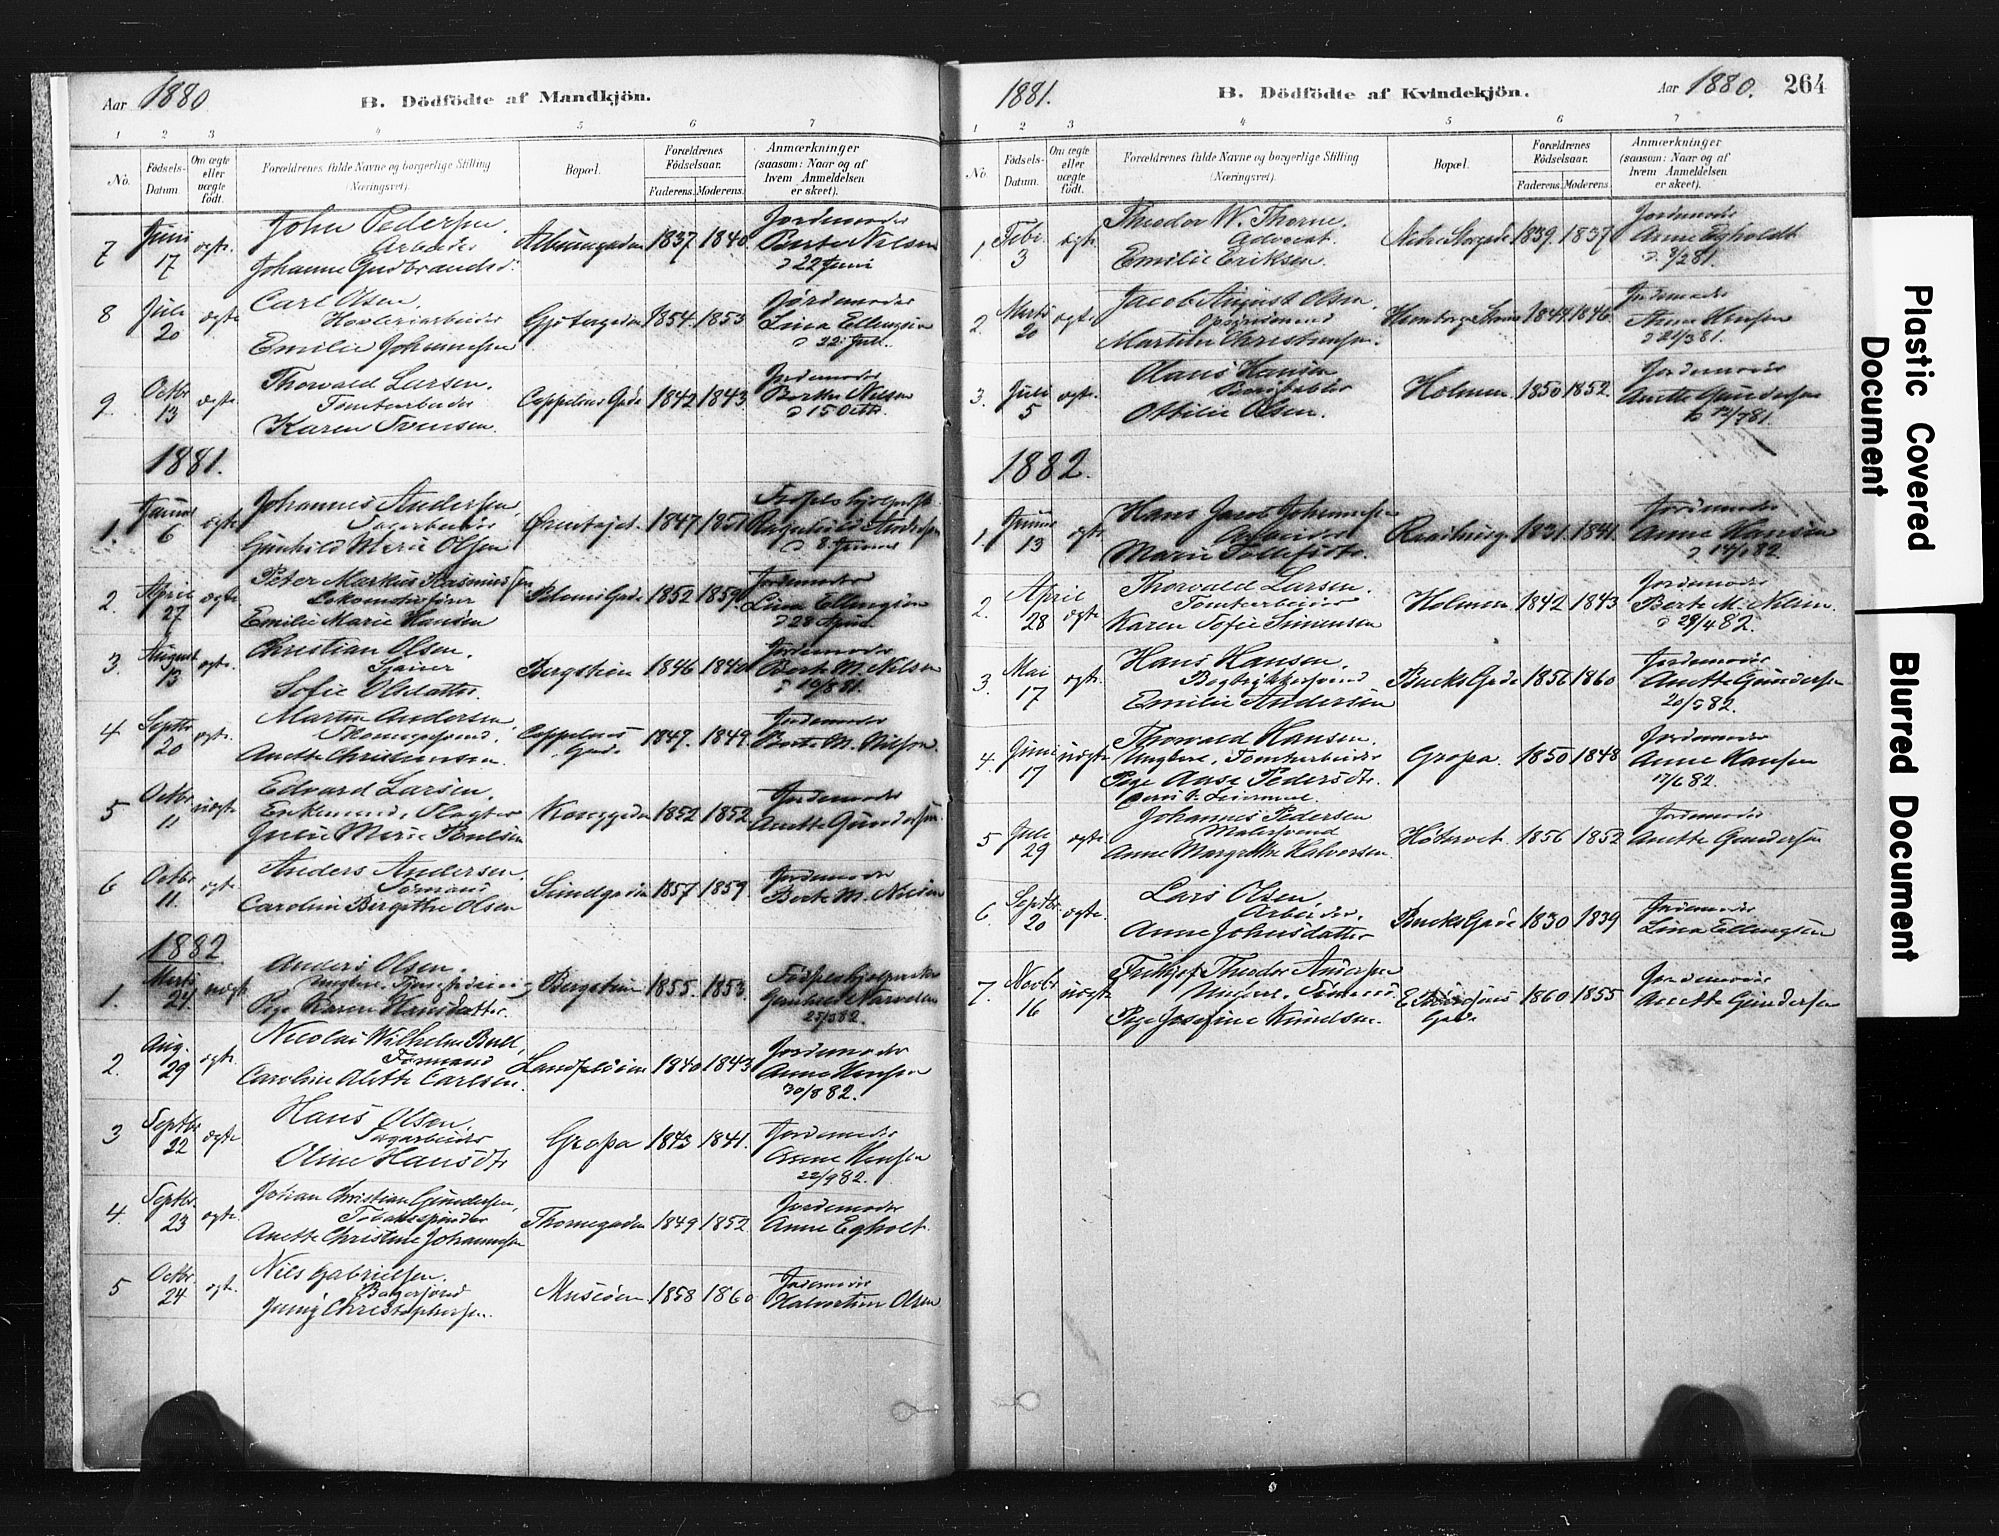 Aar 1880
B. Dödfödte af Mandkjön.
1 2 3 4 5 6 7
No. Födsels-Datum. Om ægte eller uægte födt. Forældrenes fulde Navne og borgerlige Stilling (Næringsvei). Bopæl. Forældrenes Födselsaar. Faderens. Moderens. Anmærkninger (saasom: Naar og af hvem Anmeldelsen er skeet).
7 Juni 17 ægte John Pedersen. 1837 1840 Jordemoder
Arbeider Berte Nilsen
Johanne Gudbrandsd. 22 Juni
8 Juli 20 ægte Carl Olsen, 1854 1853 Jordemoder
Høvleriarbeider Lina Ellingsen
Emilie Johannesen 22 Juli
9 Octbr 13 ægte Thorvald Larsen. Cappelens Gade 1842 1843 Jordemoder
Tomtearbeider Berthe Nilsen
Karen Svensen. 15 Octbr
1881.
1. Januar 6 ægte Johannes Andersen, 1847
Sagarbeider Andersen
Gunhild Marie Olsen 8 Januar
2. April 27 ægte Peter Markus Rasmussen 1852 1859 Jordemoder
Lokomotivfører Lina Ellingsen
Emilie Marie Hansen 28 April
3. August 13 ægte Christian Olsen. Bergstien 1846 1840 Jordemoder
Berte M. Nilsen
Sofie Olsdatter
4 Septbr 20 ægte Martin Andersen Cappelens Gade 1847. 1849 Jordemoder
Berte M. Nilsen
Anette Christensen.
5 Octbr 11 uægte Edvard Larsen, 1852 1852 Jordemoder
Enkemand, Slagter Anette Gundersen
Julie Marie Poulsen
6 Octbr 11. ægte Anders Andersen. Sundgaden 1857 1859 Jordemoder
Sømand Berte M. Nilsen
Caroline Birgithe Olsen
1882
1. Marts 24 uægte Anders Olsen. Bergstien 1855. 1853.
Ungkarl,
Pige Karen Hansdatter. 25/3 82.
2. Aug. 29 ægte Nicolai Wilhelm Bull, Landfaløien 1840 1843 Jordemoder
Formand Anne Hansen
Caroline Alette Carlsen. 30/8 82.
3 Septbr 22 ægte Hans Olsen, Gropa 1843 1841. Jordemoder
Sagarbeider Anne Hansen
Oline Hansdtr 22/9 82.
4. Septbr. 23 ægte. Johan Christian Gundersen, Thornegaden 1849 1852 Jordemoder
Tobaksspinder Anne Egholt
Anette Christine Johannesen
5 Octbr. 24 ægte. Nils Gabrielsen. Museøen 1858 1860 Jordemoder
Bagersvend Halvortine Olsen
Jenny Christophersen.
1881. B. Dödfödte af Kvindekjön. Aar 1880. 264
1 2 3 4 5 6 7
No. Födsels-Datum. Om ægte eller uægte födt. Forældrenes fulde Navne og borgerlige Stilling (Næringsvei). Bopæl. Forældrenes Födselsaar. Faderens. Moderens. Anmærkninger (saasom: Naar og af hvem Anmeldelsen er skeet).
1. Febr. 3 ægte Theodor W. Thorne, Nedre Storgade 1839. 1837 Jordemoder
Advocat. Anne Egholdt
Emilie Eriksen. 3/2 81.
2. Marts 20 ægte. Jacob August Olsen, 1849 1846 Jordemoder
Opsynsmand Anne Hansen
Martine Christensen. 21/3 81.
3. Juli 5 ægte. Olaus Hansen Holmen 1850 1852. Jordemoder
Anette Gundersen
Ottilie Olsen. 12/7 81.
1882.
1. Januar 13 ægte Hans Jacob Johannesen 1831. 1841. Jordemoder
Arbeider Anne Hansen
Marie Tollefsdtr. 14/1 82
2. April 28 ægte Thorvald Larsen. Holmen 1842 1843 Jordemoder
Tomtearbeider Berte M. Nilsen.
Karen Sofie Simensen 29/4 82.
3. Mai 17 ægte. Hans Hansen. Bucks Gade 1856 1860 Jordemoder
Bogtrykkersvend Anette Gundersen
Emilie Andersen 20/5 82.
4. Juni 17 uægte Thorvald Hansen. Gropa. 1850 1848 Jordemoder
Ungkarl, Tomtearbeider Anne Hansen
Pige Aase Pedersdtr. 17/6 82.
5 Juli 29 ægte Johannes Pedersen Høtorvet 1856 1852 Jordemoder
Malersvend Anette Gundersen
Anne Margrethe Halvorsen.
6. Septbr. 20 ægte. Lars Olsen, Bucks Gade 1830 1839 Jordemoder
Arbeider. Lina Ellingsen
Anne Johnsdatter
7. Novbr 16 uægte Frithjof Theodor Andersen Gade 1860 1855 Jordemoder
Ungkarl, Sømand Anette Gundersen
Pige Josefine Knudsen.
Plastic Covered Document
Blurred Document